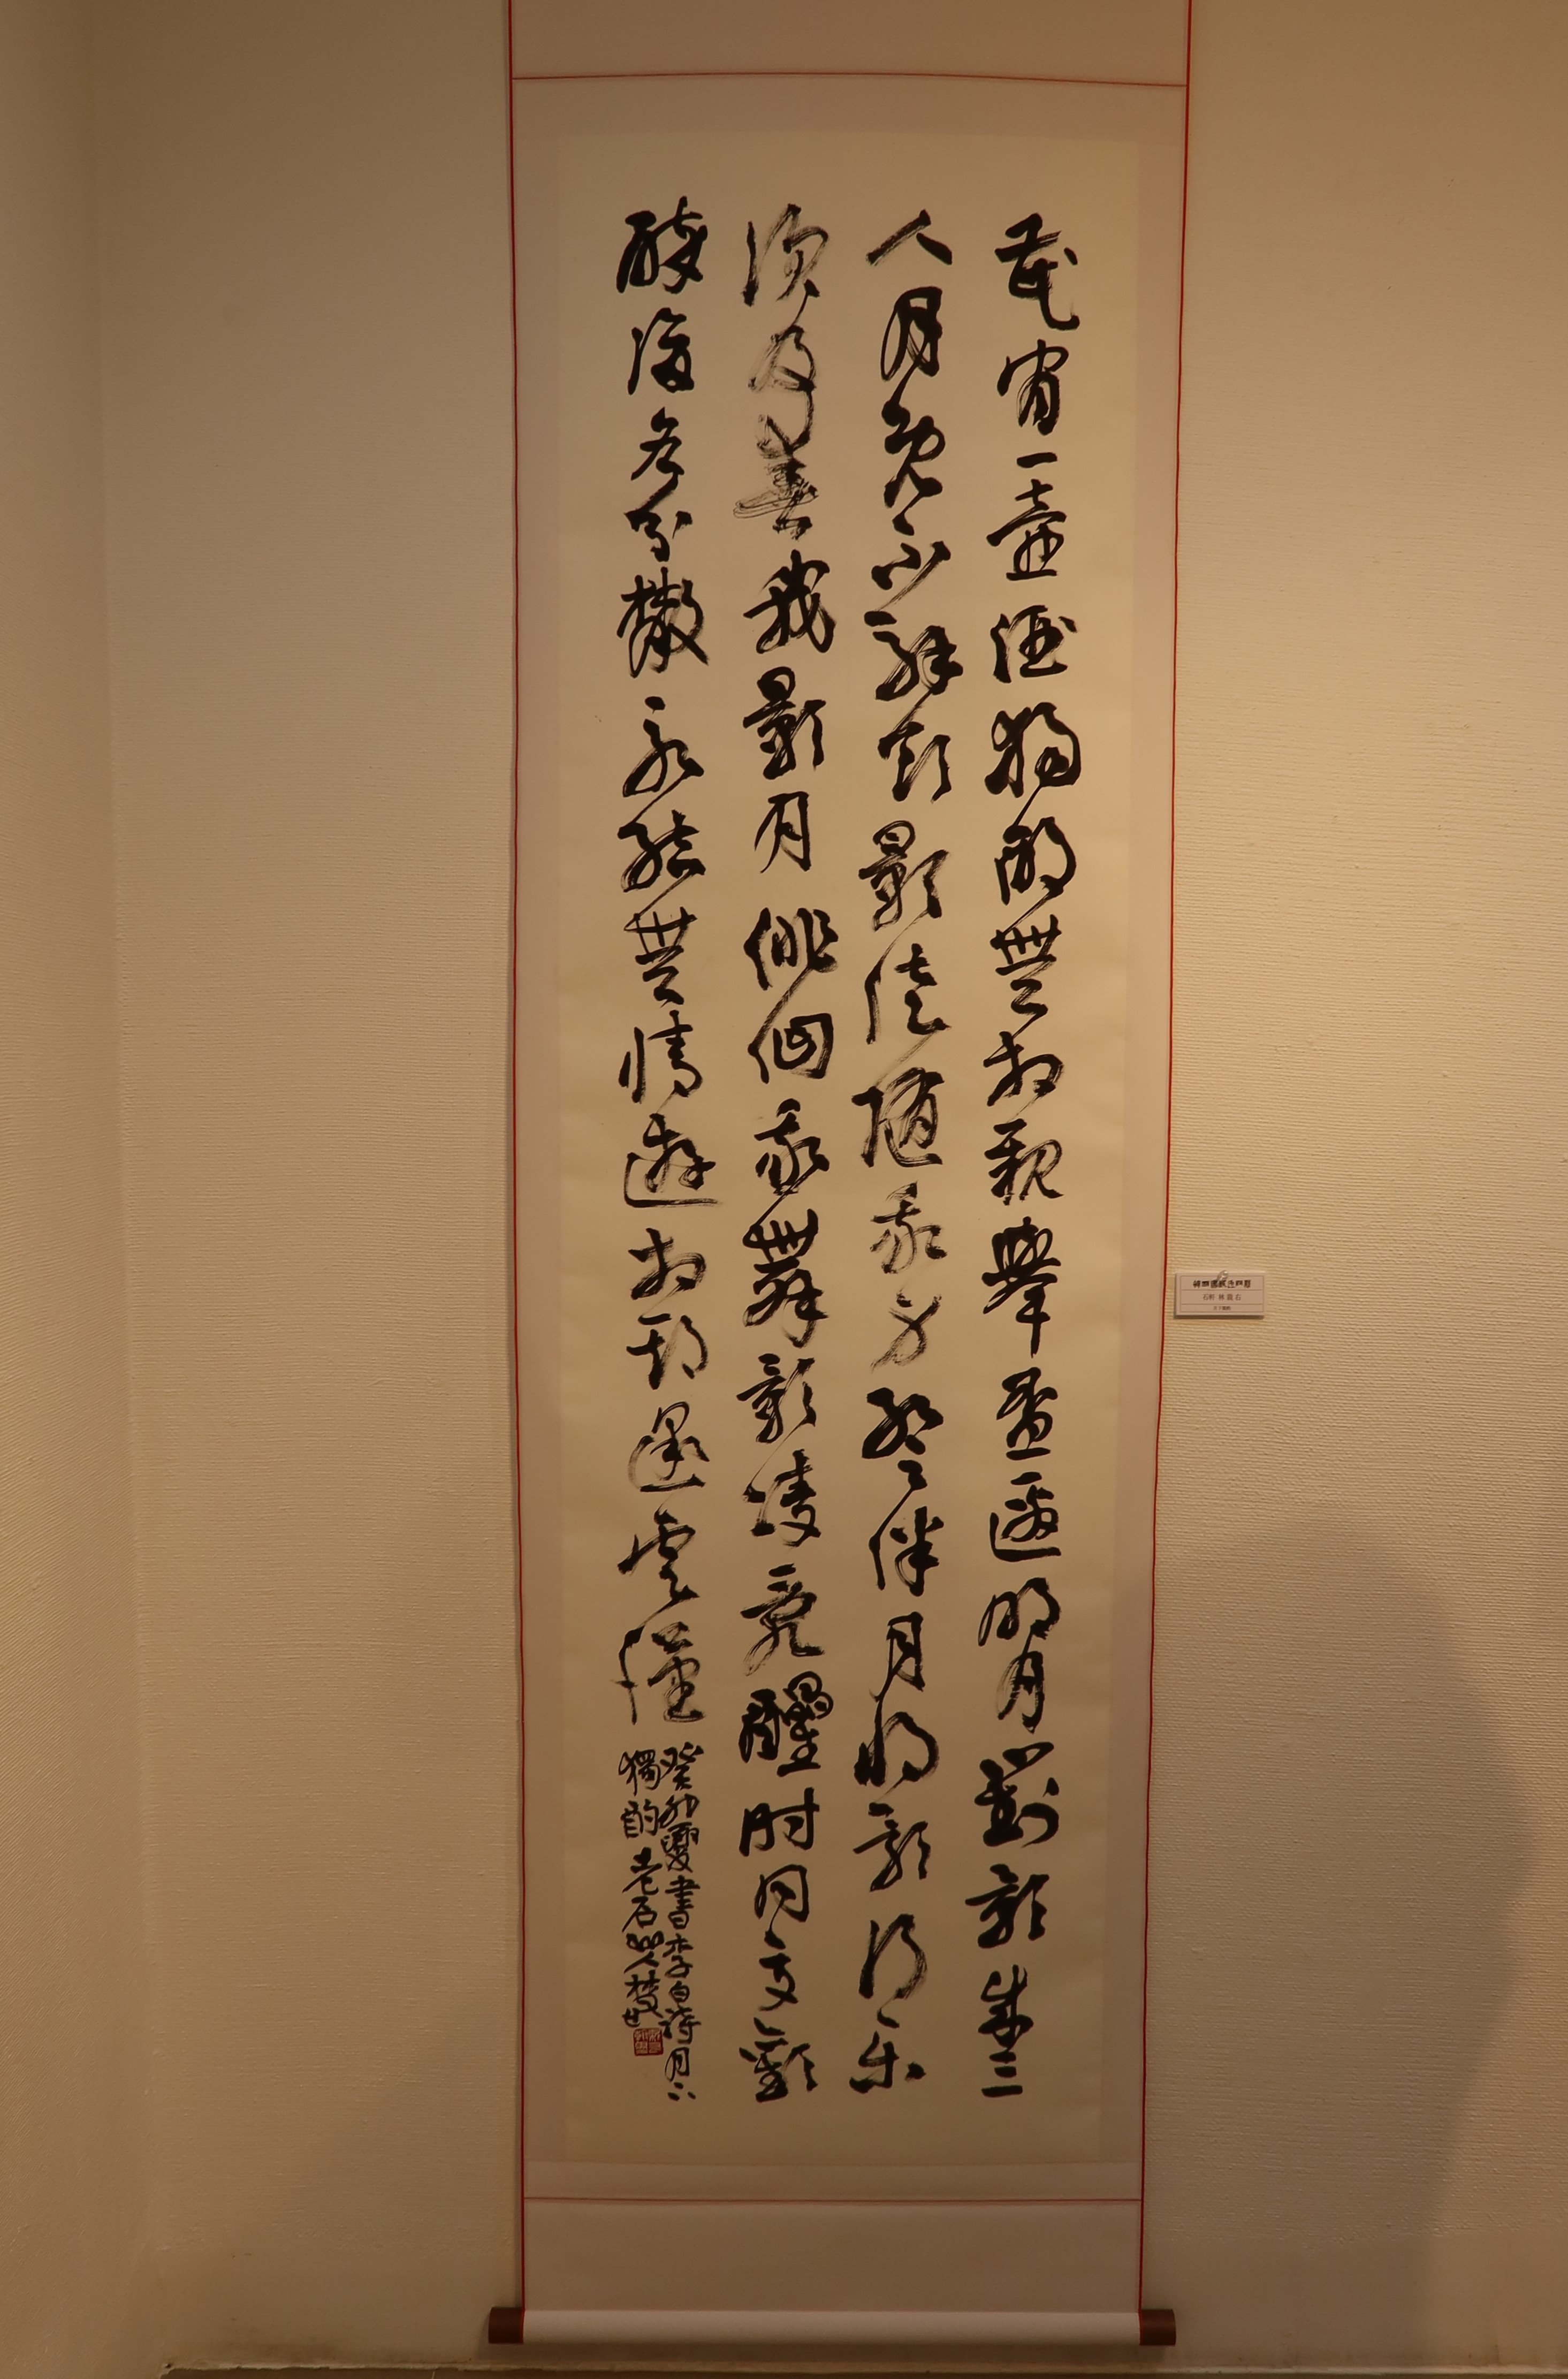 花間一壺酒獨酌無相親舉盃邀明月對影成三
人月既不解飲影徒隨我身暫伴月將影行樂
須及春我影月徘徊我舞影凌亂醒時同交歡
醉後各分散永結無情遊相期邈雲漢
癸卯夏書李白詩月下
獨酌 老石山人